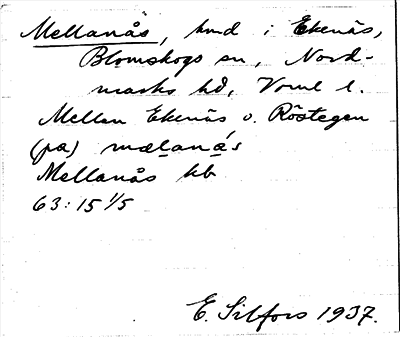 Mellanås, hmd i Ekenäs,
Blomskogs sn, Nord-
marks hd, Vrml l.
Mellan Ekenäs o. Röstegen
(på) mælanás
Mellanås kb
63:15 1/5
E. Silfors 1937.